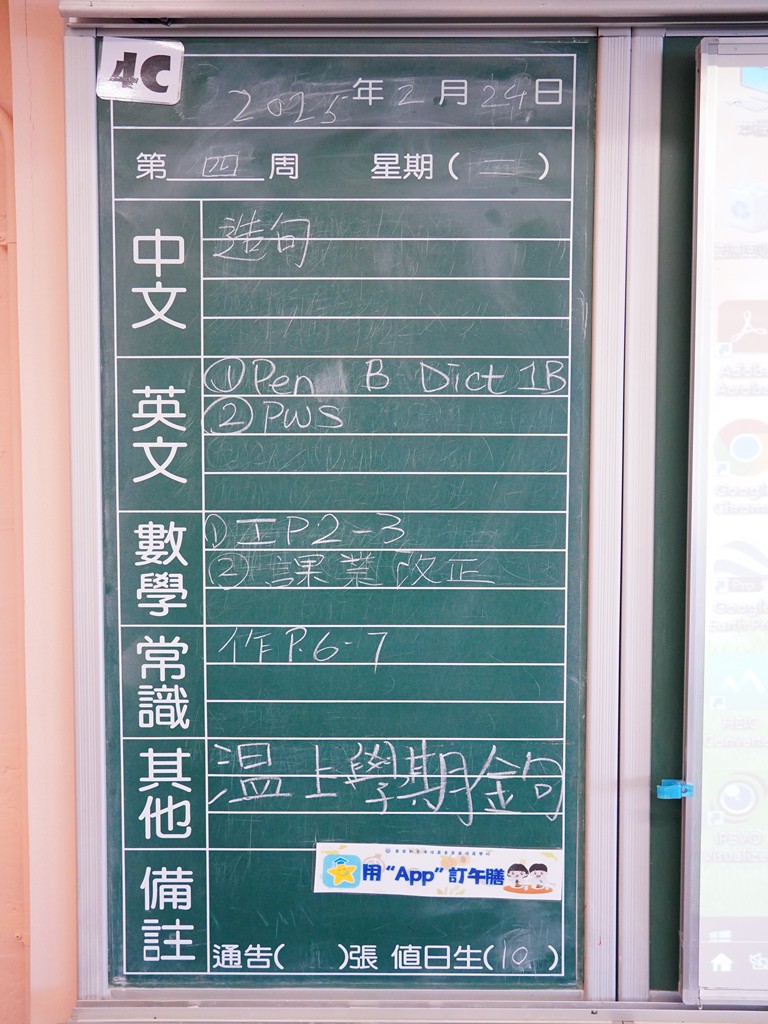 4C
2025年2月24日
第四周 星期(一)
中文
造句
英文
①Pen B Dict 1B
②PWS
數學
①工P2-3
②課業改正
常識
作P.6-7
其他
溫上學期金句
備註
用“App”訂午膳
通告( )張 值日生(10)